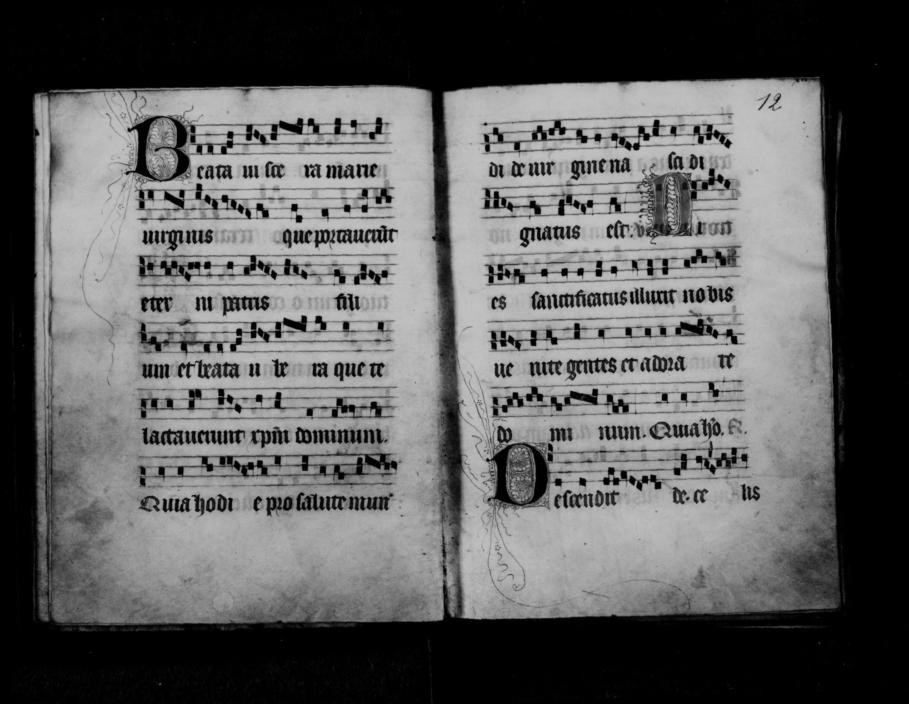 Beata uisce ra marie
uirginis que portauerūt
eter ni patris fili
um et beata u be ra que te
lactauerunt xpm̄ dominum.
Quia hodi e pro salute mun
12
di de uir gine na sci di
gnatus est. V. Di
es sanctificatus illuxit nobis
ue nite gentes et adora te
do mi num. Quia ho. R.
Descendit de ce lis